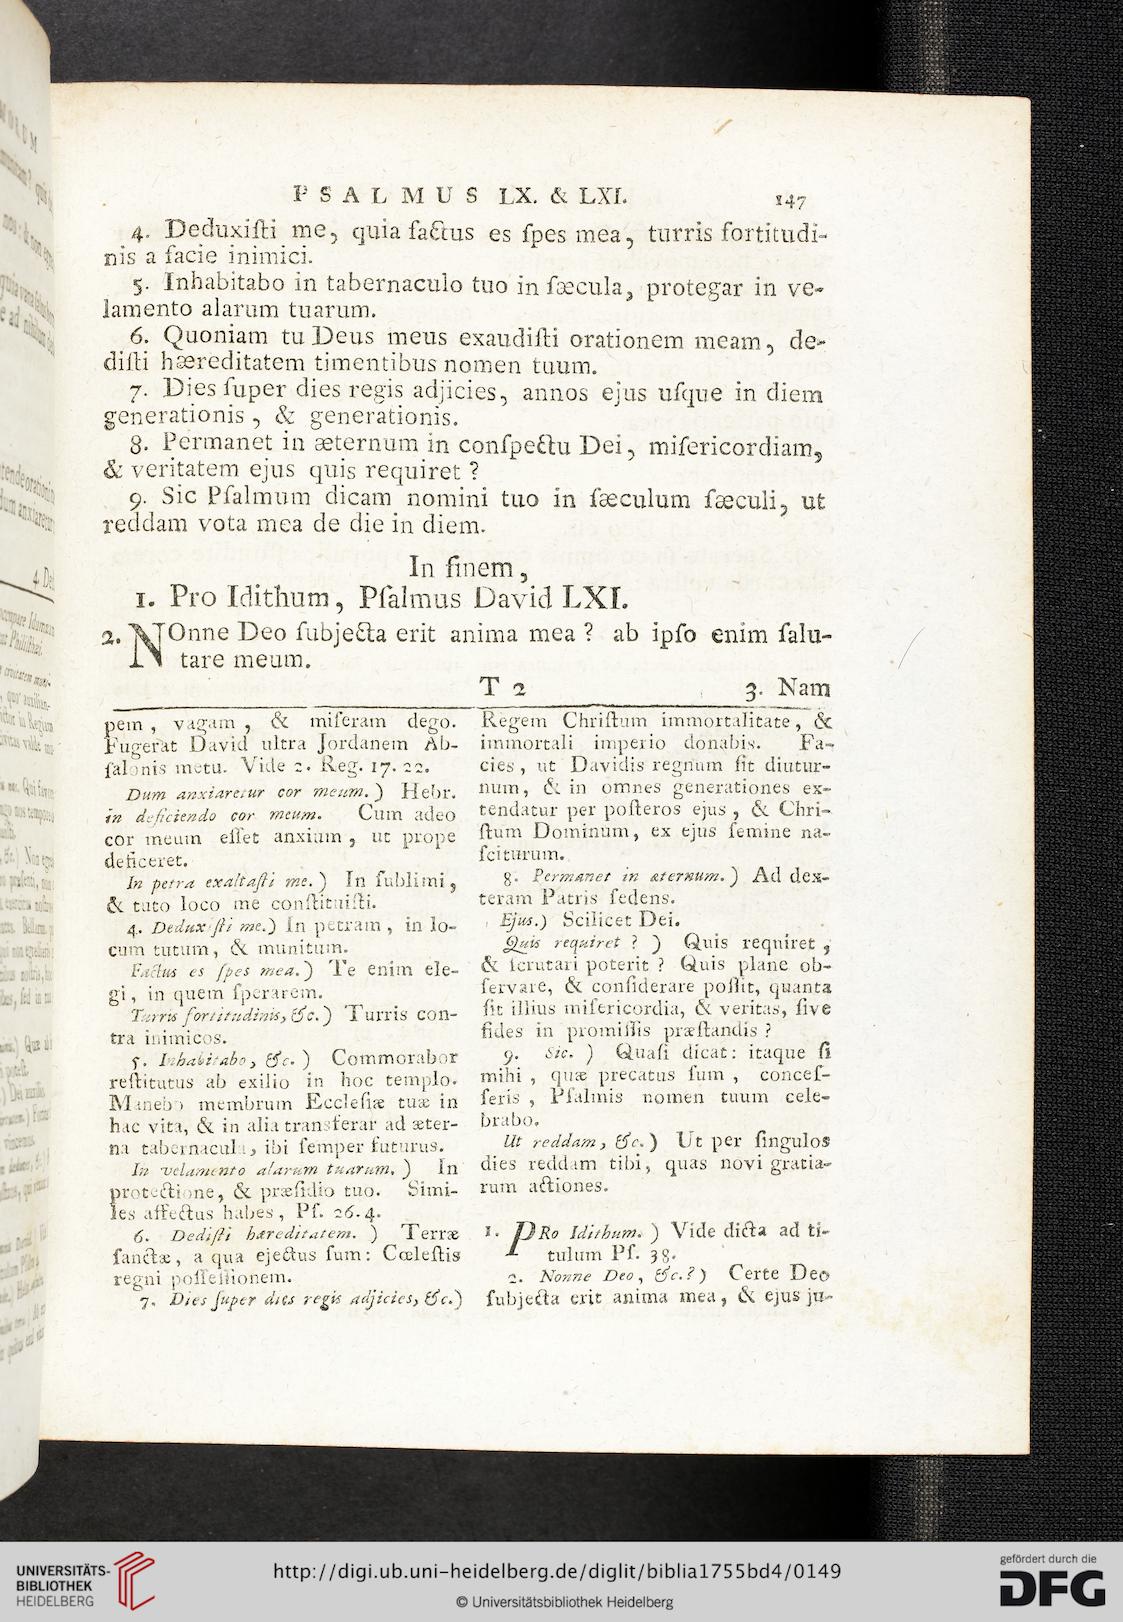 PSALMUS LX. & LXI. 147
4. Deduxiſti me, quia factus es ſpes mea, turris fortitudi-
nis a facie inimici.
5. Inhabitabo in tabernaculo tuo in ſæcula, protegar in ve-
lamento alarum tuarum.
6. Quoniam tu Deus meus exaudiſti orationem meam, de-
diſti hæreditatem timentibus nomen tuum.
7. Dies ſuper dies regis adjicies, annos ejus uſque in diem
generationis, & generationis.
8. Permanet in æternum in conſpectu Dei, miſericordiam,
& veritatem ejus quis requiret ?
9. Sic Pſalmum dicam nomini tuo in ſæculum ſæculi, ut
reddam vota mea de die in diem.
In finem,
1. Pro Idithum, Pſalmus David LXI.
2. NOnne Deo ſubjecta erit anima mea ? ab ipſo enim ſalu-
tare meum.
T 2 3. Nam
pem, vagam, & miſeram dego.
Fugerat David ultra Jordanem Ab-
ſalonis metu. Vide 2. Reg. 17. 22.
Dum anxiaretur cor meum.) Hebr.
in deficiendo cor meum. Cum adeo
cor meum eſſet anxium, ut prope
deficeret.
In petra exaltaſti me.) In ſublimi,
& tuto loco me conſtituiſti.
4. Deduxiſti me.) In petram, in lo-
cum tutum, & munitum.
Factus es ſpes mea.) Te enim ele-
gi, in quem ſperarem.
Turris fortitudinis, &c.) Turris con-
tra inimicos.
5. Inhabitabo, &c. ) Commorabor
reſtitutus ab exilio in hoc templo.
Manebo membrum Eccleſiæ tuæ in
hac vita, & in alia transferar ad æter-
na tabernacula, ibi ſemper futurus.
In velamento alarum tuarum. ) In
protectione, & præſidio tuo. Simi-
les affectus habes, Pſ. 26. 4.
6. Dediſti hæreditatem. ) Terræ
ſanctæ, a qua ejectus ſum: Cœleſtis
regni poſſeſſionem.
7. Dies ſuper dies regis adjicies, &c.)
Regem Chriſtum immortalitate, &
immortali imperio donabis. Fa-
cies, ut Davidis regnum ſit diutur-
num, & in omnes generationes ex-
tendatur per poſteros ejus, & Chri-
ſtum Dominum, ex ejus ſemine na-
ſciturum.
8. Permanet in æternum.) Ad dex-
teram Patris ſedens.
Ejus.) Scilicet Dei.
Quis requiret ? ) Quis requiret,
& ſcrutari poterit ? Quis plane ob-
ſervare, & conſiderare poſſit, quanta
ſit illius miſericordia, & veritas, ſive
fides in promiſſis præſtandis ?
9. Sic. ) Quaſi dicat: itaque ſi
mihi, quæ precatus ſum, conceſ-
ſeris, Pſalmis nomen tuum cele-
brabo.
Ut reddam, &c.) Ut per ſingulos
dies reddam tibi, quas novi gratia-
rum actiones.
1. PRo Idithum. ) Vide dicta ad ti-
tulum Pſ. 38.
2. Nonne Deo, &c.?) Certe Deo
ſubjecta erit anima mea, & ejus ju-
UNIVERSITÄTS-
BIBLIOTHEK
HEIDELBERG
http://digi.ub.uni-heidelberg.de/diglit/biblia1755bd4/0149
© Universitätsbibliothek Heidelberg
gefördert durch die
DFG